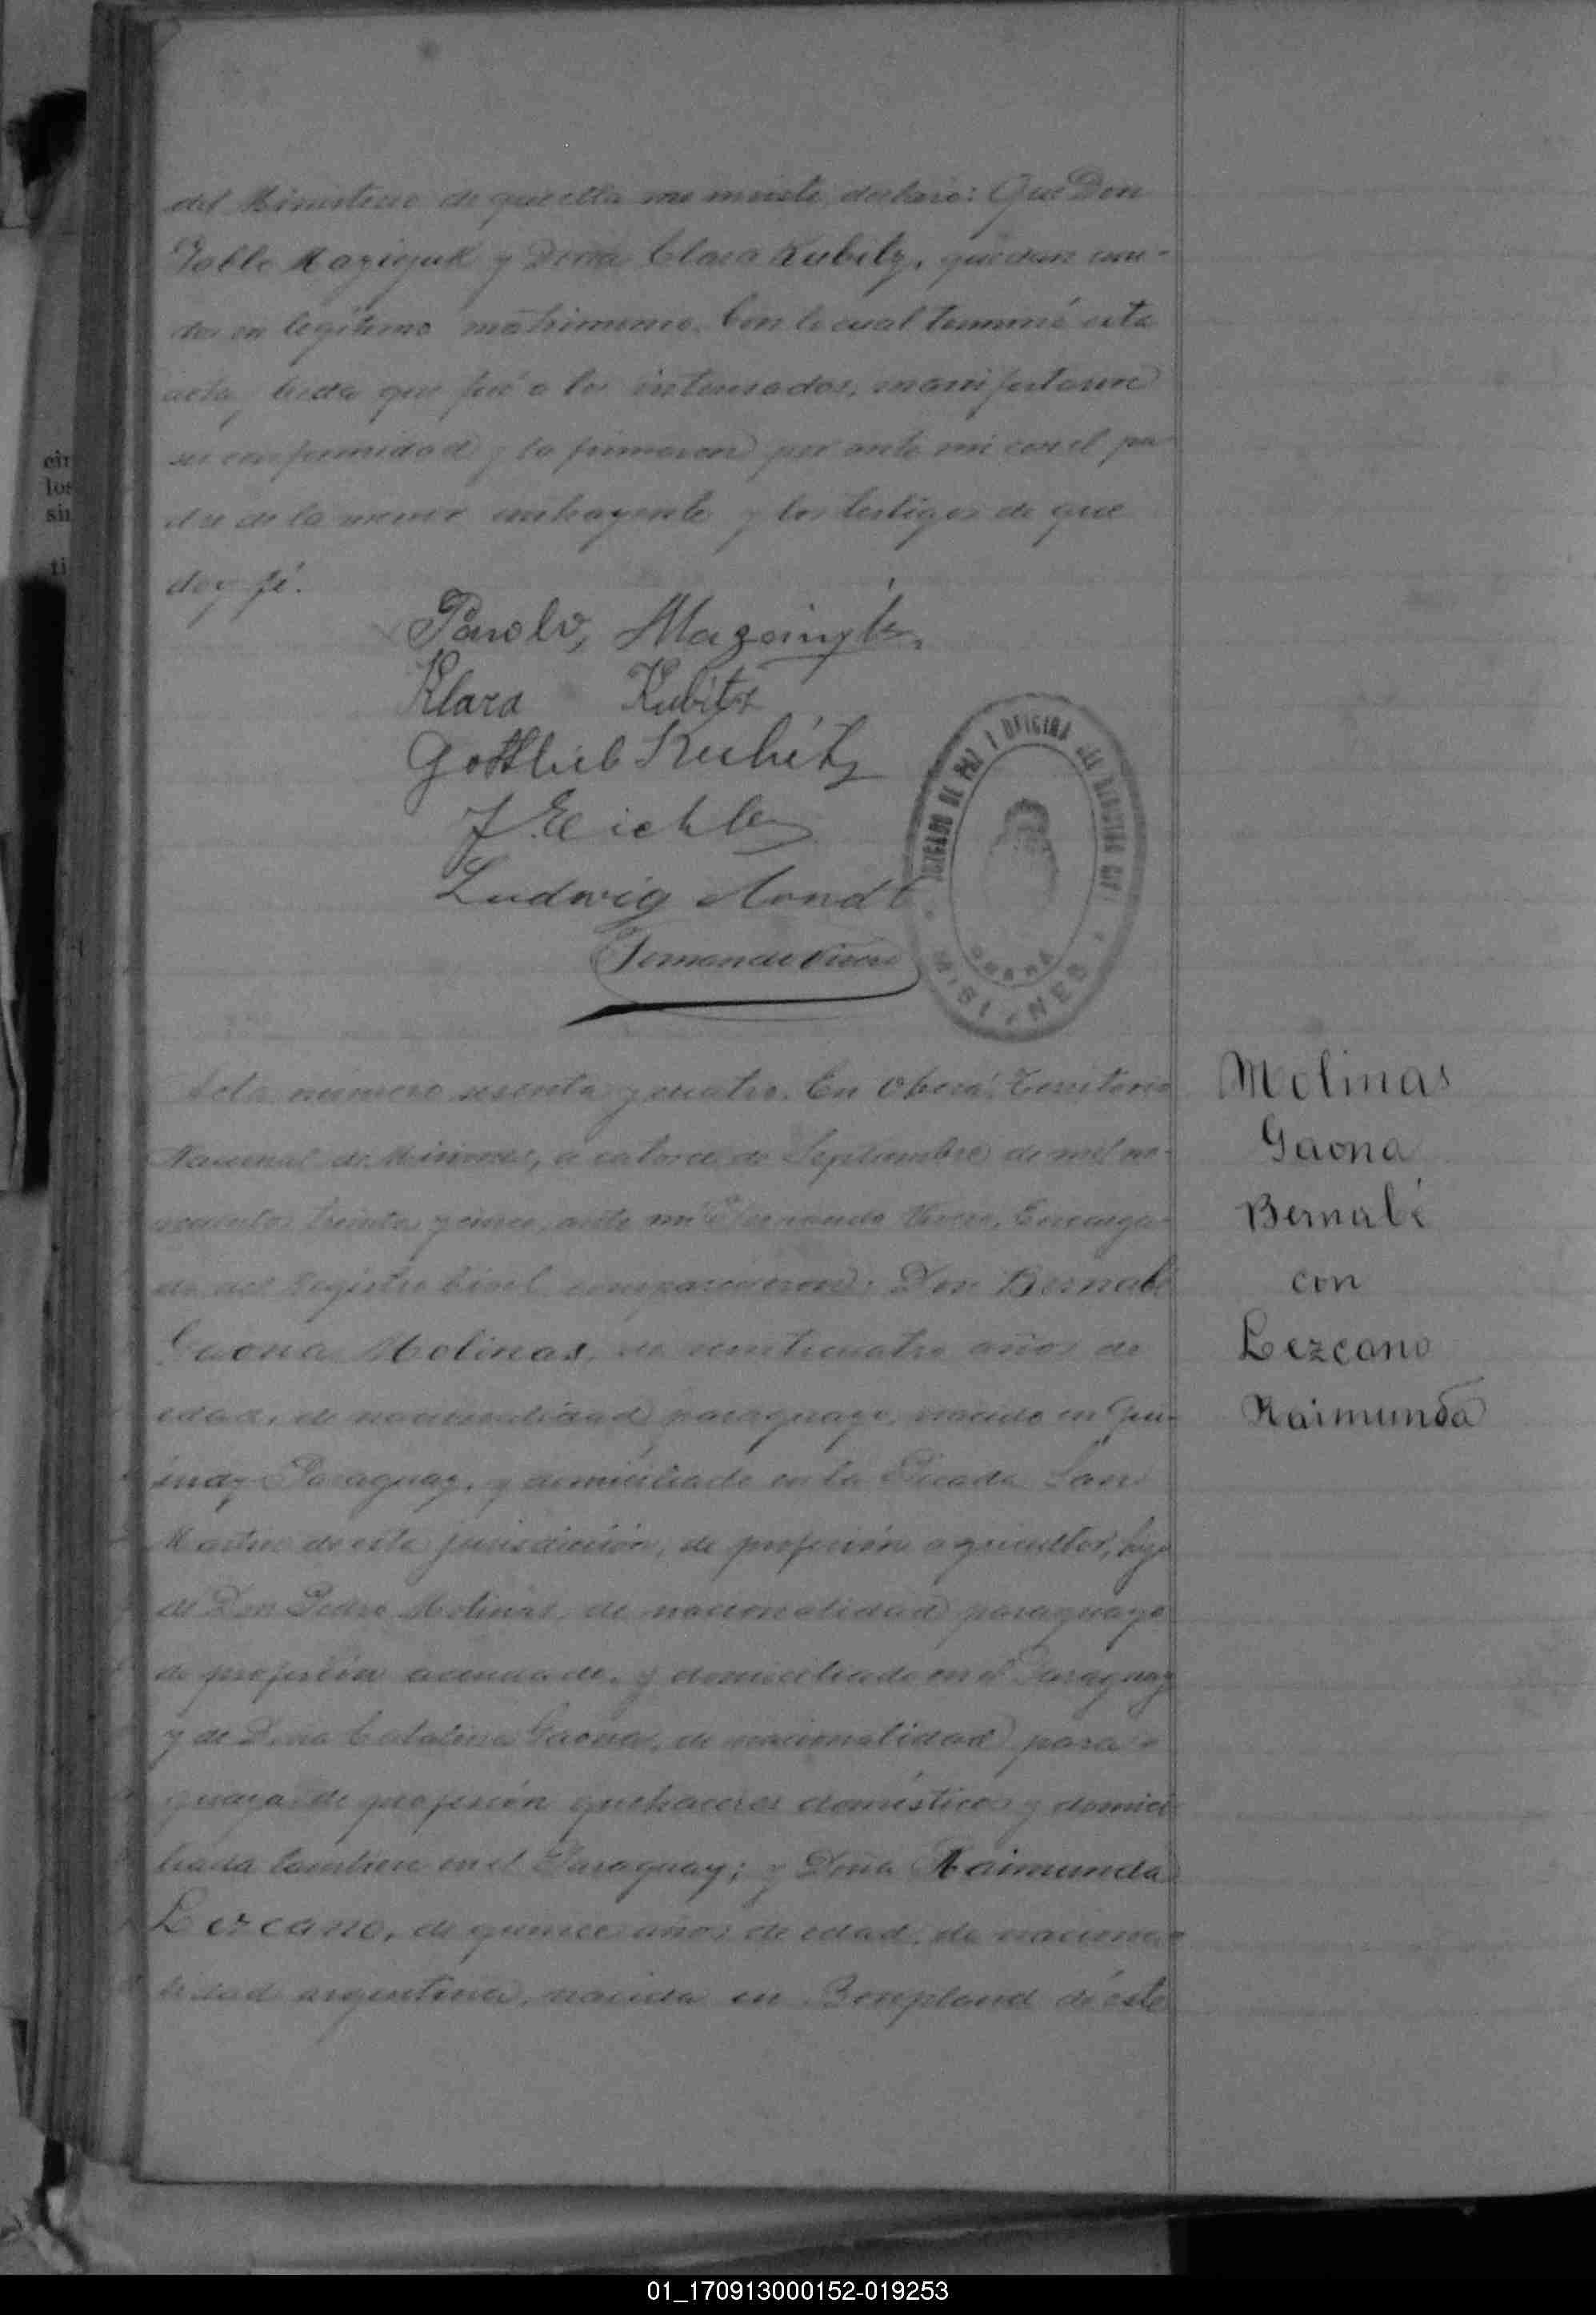 del Ministerio de que ella me inviste declaro: Que Don
Pablo Mazicjuk y Doña Clara Kubitz, quedan uni-
dos en legitimo matrimonio. Con lo cual terminó esta
acta, leida que fué a los interesados, manifestaron
su conformidad y la firmaron por ante mi con el pa
dre de la menor contrayente y los testigos de que
doy fé.
Klara Kubitz
Gottlieb Kubitz
J. Eichler
Ludwig Arndt
Fernando Vivero
JUZGADO DE PAZ Y OFICINA DEL REGISTRO CIVIL
OBERÁ
MISIONES
Acta número sesenta y cuatro. En Oberá, Territorio
Nacional de Misiones, a catorce de Septiembre de mil no-
vecientos treinta y cinco, ante mi Fernando Vivero, Encarga-
do del Registro Civil, comparecieron: Don Bernabé
Gaona Molinas, de veinticuatro años de
edad, de nacionalidad paraguaya, nacido en Qui-
indy Paraguay, y domiciliado en la Picada San
Martin de esta jurisdicción, de profesión agricultor, hijo
de Don Pedro Molinas, de nacionalidad paraguaya
de profesión y domiciliado en el Paraguay
y de Doña Catalina Gaona, de nacionalidad para-
guaya de profesión quehaceres domésticos y domici
liada tambien en el Paraguay; y Doña Raimunda
Lezcano, de quince años de edad, de naciona-
lidad argentina, nacida en Bonpland de éste
Molinas
Gaona
Bernabé
con
Lezcano
Raimunda
cir
los
sin
ti
01_170913000152-019253